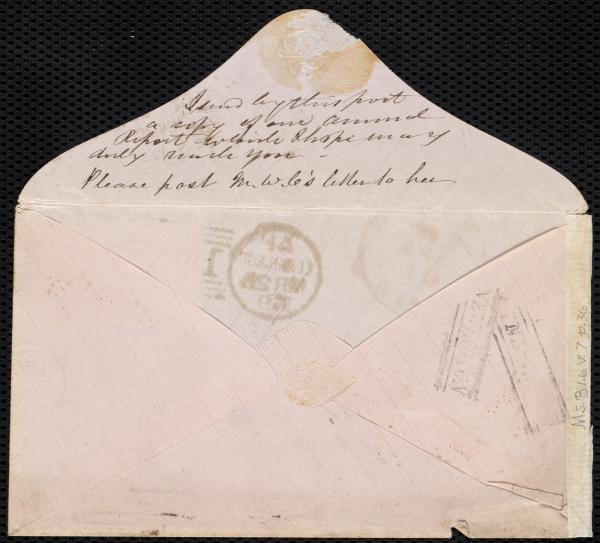 I send by this post
a copy of our Annual
Report which I hope may
duly reach you. -
Please post Mr. W. C's letter to her
Ms. B.1.6 v.7 p.36